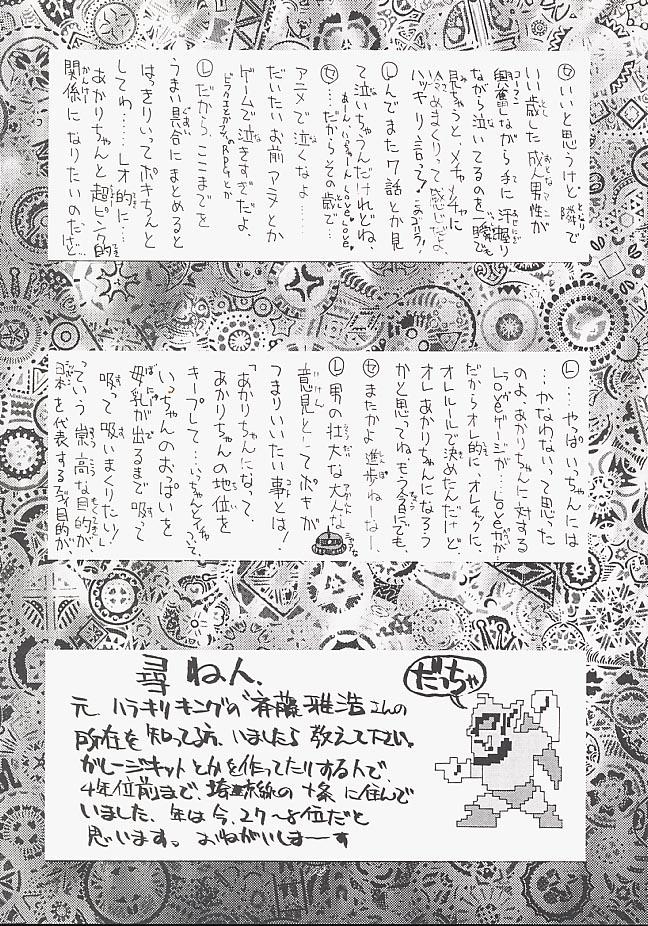 セ いいと思うけど、隣で
いい歳した成人男性が
興奮しながら手に汗握り
ながら泣いてるのを一瞬でも
見ちゃうと、メチャメチャに
ヘコみまくりって感じだよ。
ハッキリ言って!
L んでまた7話とか見
て泣いちゃうんだけれどね、
LOVE LOVE
セ …だからその歳で
アニメで泣くなよ……
だいたいお前アニメとか
ゲームで泣きすぎだよ。
RPGとか
L だから ここまでを
うまい具合にまとめると
はっきりいってポキちんと
してわ……レオ的に……
あかりちゃんと超ピンク的
関係になりたいのだけど…
L …やっぱいっちゃんには
…かなわないって思った
のよ、あかりちゃんに対する
LOVEゲージが…LOVEがが
だからオレ的に、オレチックに、
オレルールで決めたんだけど、
オレあかりちゃんになろう
かと思ってね、もう今にでも
セ またかよ 進歩ねーなー、
L 男の壮大な大人な
意見としてポキが
つまりいいたい事とは!
「あかりちゃんになって、
あかりちゃんの地位を
キープして、いっちゃんとイチャついて、
いっちゃんのおぱいを
母乳が出るまで吸って
吸って吸いまくりたい!」
っていう崇高な目的が
日本を代表する
目的が
尋ねん、
元、ハラキリキングの"斉藤雅浩さんの
所在を知ってる方、いましたら教えて下さい。
ガレージキットとかを作ってたりする人で、
4年位前まで、埼京線の十条に住んで
いました、年は今、27〜8位だと
思います。おねがいしま〜す
だっちゃ